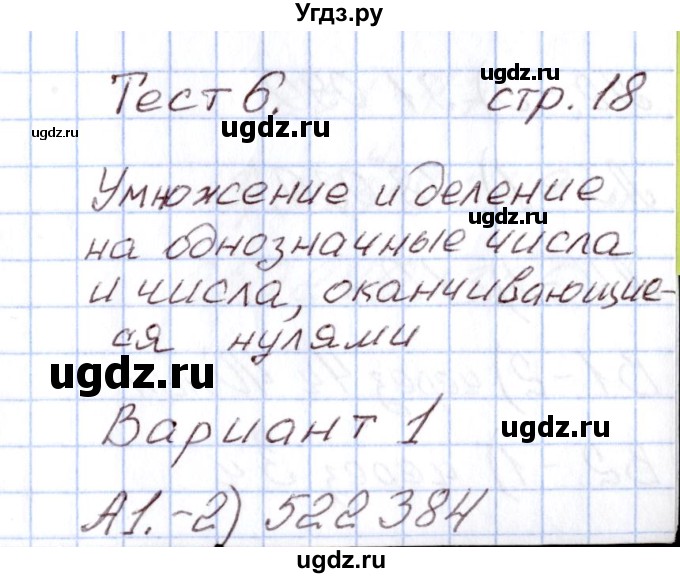 Угдз.ру
Тест 6. стр. 18
ugdz.ru
ugdz.ru
Умножение и деление
ugdz.ru
на однозначные числа
и числа, оканчивающие-
ся нулями
ugdz.ru
ugdz.ru
Вариант 1
ugdz.ru
А1.-2) 522 384
ugdz.ru
ugdz.ru